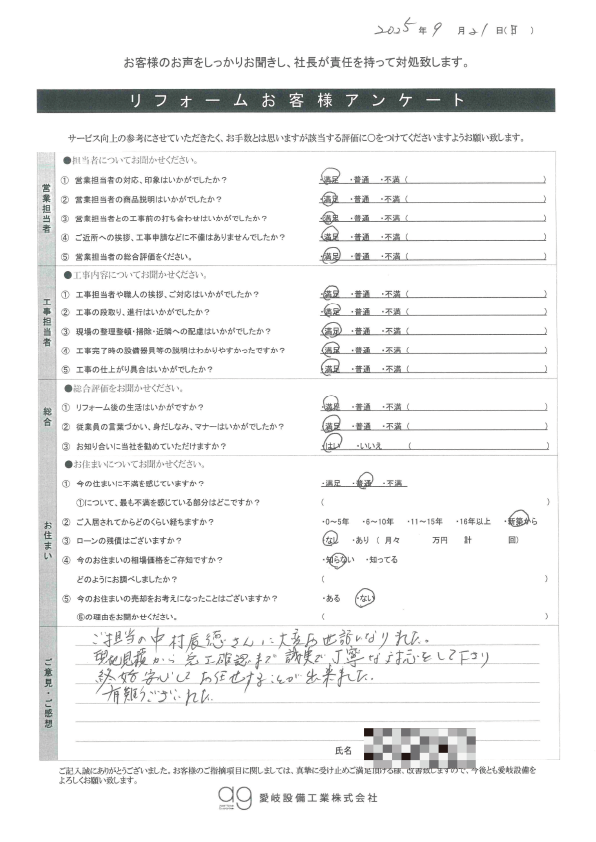 2025年 9 月 21 日(日)
お客様のお声をしっかりお聞きし、社長が責任を持って対処致します。
リフォームお客様アンケート
サービス向上の参考にさせていただきたく、お手数とは思いますが該当する評価に〇をつけてくださいますようお願い致します。
営業担当者
●担当者についてお聞かせください。
① 営業担当者の対応、印象はいかがでしたか? ・満足 ・普通 ・不満 ( )
② 営業担当者の商品説明はいかがでしたか? ・満足 ・普通 ・不満 ( )
③ 営業担当者との工事前の打ち合わせはいかがでしたか? ・満足 ・普通 ・不満 ( )
④ ご近所への挨拶、工事申請などに不備はありませんでしたか? ・満足 ・普通 ・不満 ( )
⑤ 営業担当者の総合評価をください。 ・満足 ・普通 ・不満 ( )
工事担当者
●工事内容についてお聞かせください。
① 工事担当者や職人の挨拶、ご対応はいかがでしたか? ・満足 ・普通 ・不満 ( )
② 工事の段取り、進行はいかがでしたか? ・満足 ・普通 ・不満 ( )
③ 現場の整理整頓・掃除・近隣への配慮はいかがでしたか? ・満足 ・普通 ・不満 ( )
④ 工事完了時の設備器具等の説明はわかりやすかったですか? ・満足 ・普通 ・不満 ( )
⑤ 工事の仕上がり具合はいかがでしたか? ・満足 ・普通 ・不満 ( )
総合
●総合評価をお聞かせください。
① リフォーム後の生活はいかがですか? ・満足 ・普通 ・不満 ( )
② 従業員の言葉づかい、身だしなみ、マナーはいかがでしたか? ・満足 ・普通 ・不満 ( )
③ お知り合いに当社を勧めていただけますか? ・はい ・いいえ ( )
お住まい
●お住まいについてお聞かせください。
① 今の住まいに不満を感じていますか? ・満足 ・普通 ・不満
①について、最も不満を感じている部分はどこですか? ( )
② ご入居されてからどのくらい経ちますか? ・0～5年 ・6～10年 ・11～15年 ・16年以上 ・新築から
③ ローンの残債はございますか? ・なし ・あり ( 月々 万円 計 回)
④ 今のお住まいの相場価格をご存知ですか? ・知らない ・知ってる
どのようにお調べしましたか? ( )
⑤ 今のお住まいの売却をお考えになったことはございますか? ・ある ・ない
⑥の理由をお聞かせください。 ( )
ご意見・ご感想
ご担当の中村辰徳さんに大変お世話になりました。
現地見積から完工確認まで誠実で丁寧な対応をして下さり
終始安心してお任せすることが出来ました。
有難うございました。
氏名
ご記入誠にありがとうございました。お客様のご指摘項目に関しましては、真摯に受け止めご満足頂ける様、改善致しますので、今後とも愛岐設備を
よろしくお願い致します。
ag 愛岐設備工業株式会社